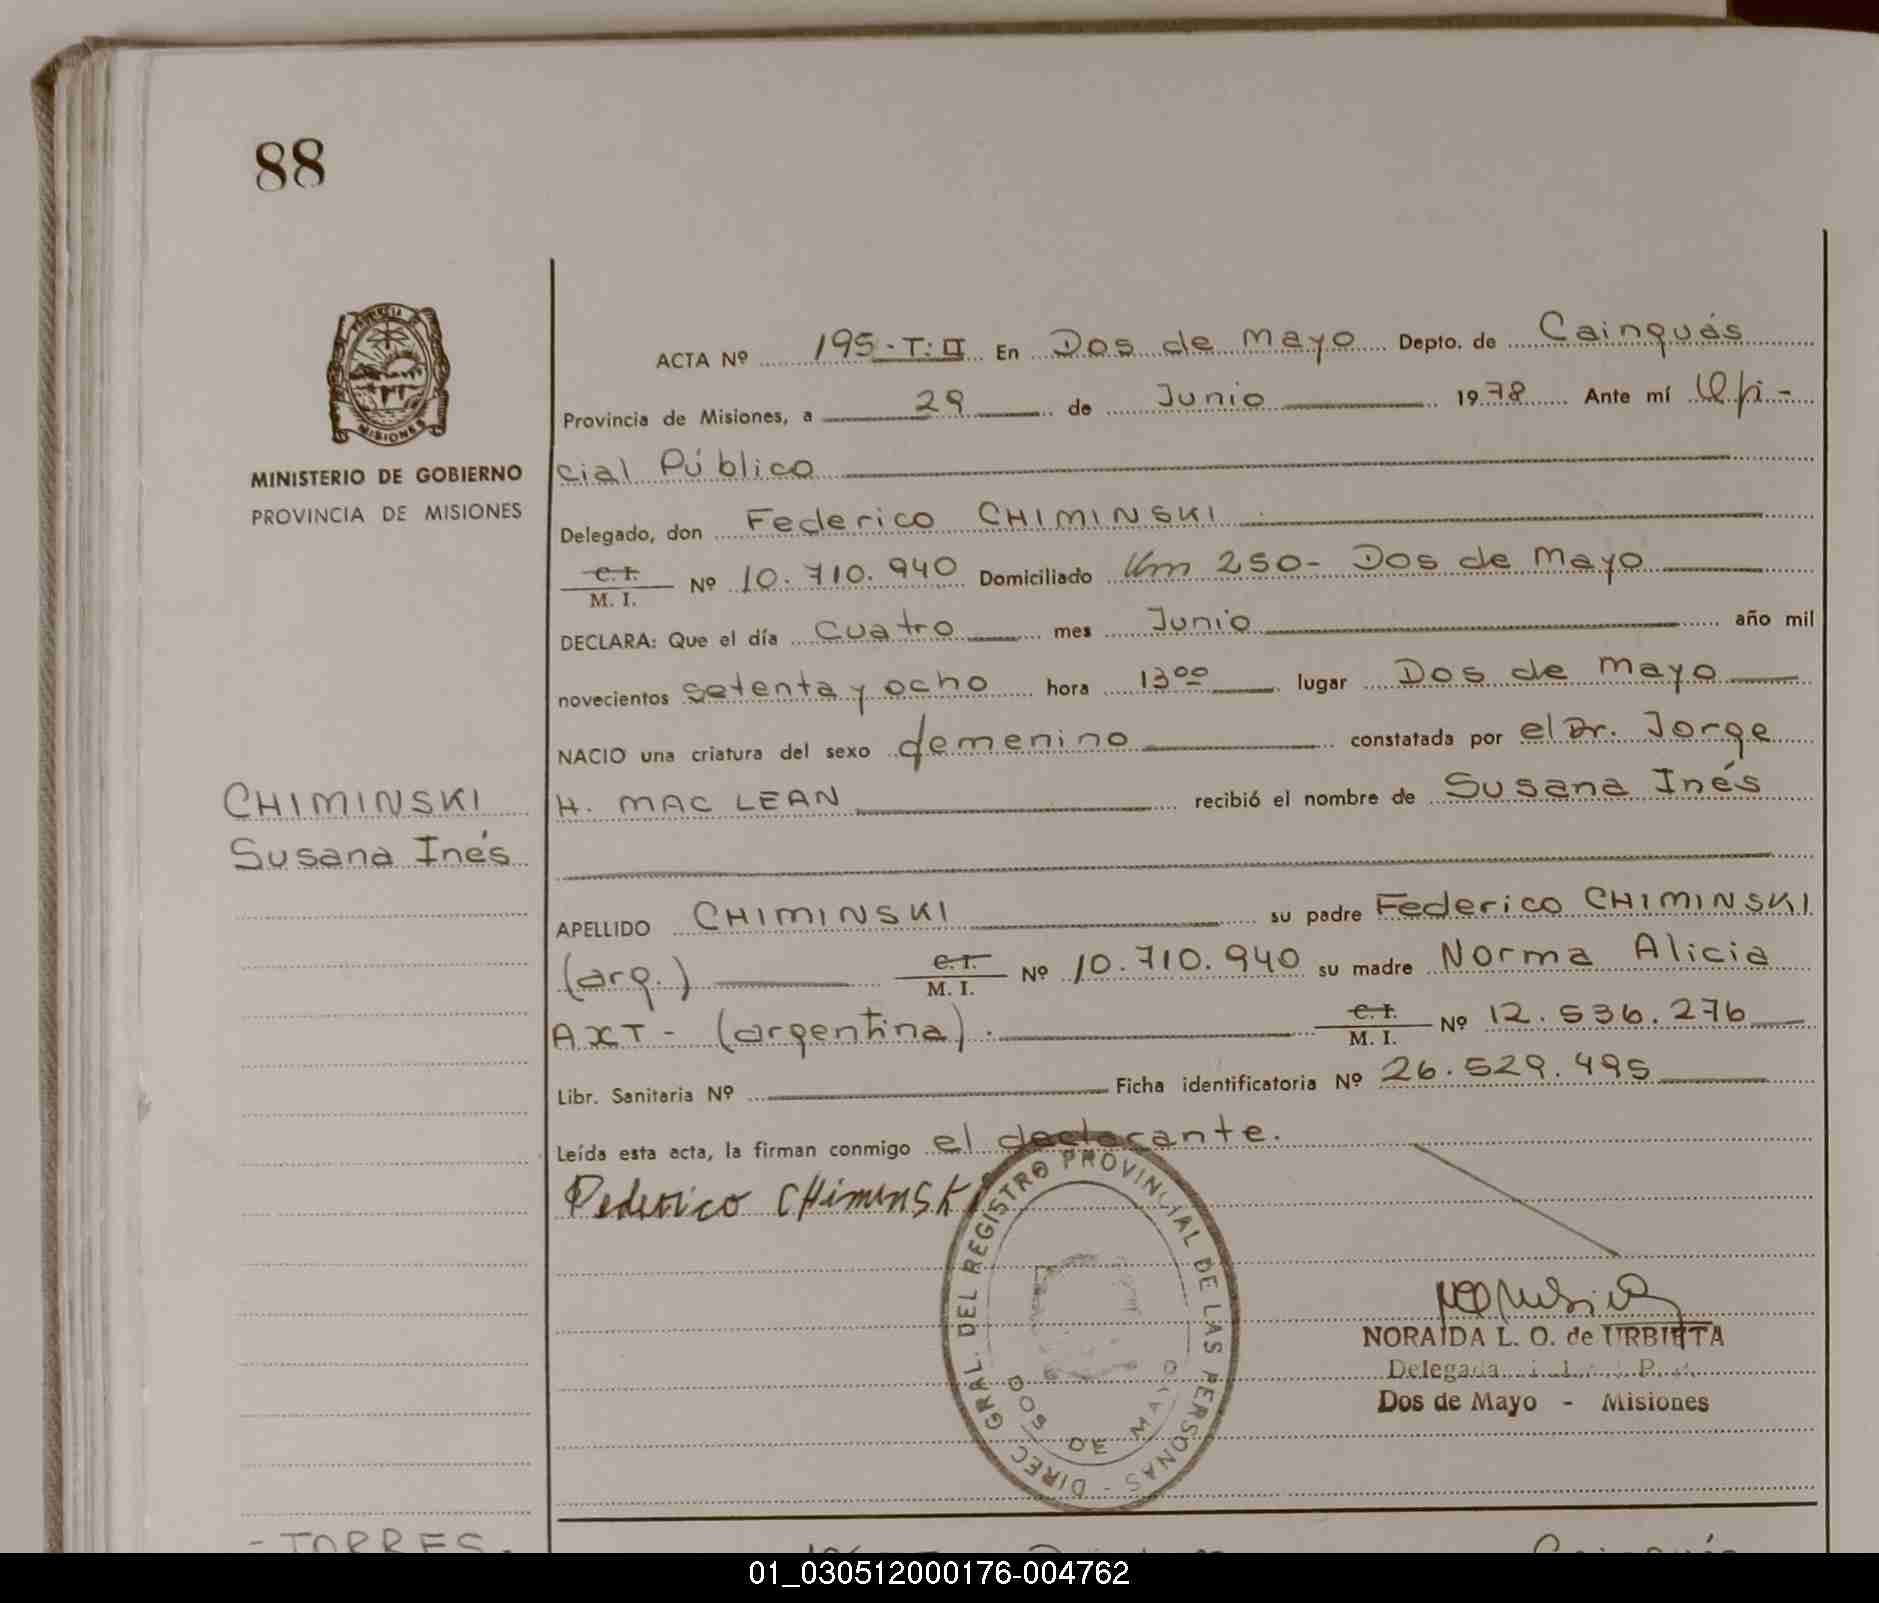 88
PROVINCIA DE
MISIONES
MINISTERIO DE GOBIERNO
PROVINCIA DE MISIONES
CHIMINSKI
Susana Inés
ACTA Nº 195-T: II En Dos de Mayo Depto. de Cainguás
Provincia de Misiones, a 29 de Junio 1978 Ante mí Ofi-
cial Público
Delegado, don Federico CHIMINSKI
C. I.
M. I. Nº 10.710.940 Domiciliado Km 250- Dos de Mayo
DECLARA: Que el día cuatro mes Junio año mil
novecientos setenta y ocho hora 13⁰⁰ lugar Dos de Mayo
NACIO una criatura del sexo femenino constatada por el Dr. Jorge
H. MAC LEAN recibió el nombre de Susana Inés
APELLIDO CHIMINSKI su padre Federico CHIMINSKI
(arg.) C. I. M. I. Nº 10.710.940 su madre Norma Alicia
AXT - (argentina). C. I. M. I. Nº 12.536.276
Libr. Sanitaria Nº Ficha identificatoria Nº 26.529.495
Leída esta acta, la firman conmigo el declarante.
Federico CHiminski
DIREC GRAL. DEL REGISTRO PROVINCIAL DE LAS PERSONAS -
DOS DE MAYO
NORAIDA L. O. de URBIETA
Delegada
Dos de Mayo - Misiones
- TORRES.
Cainguás
01_030512000176-004762